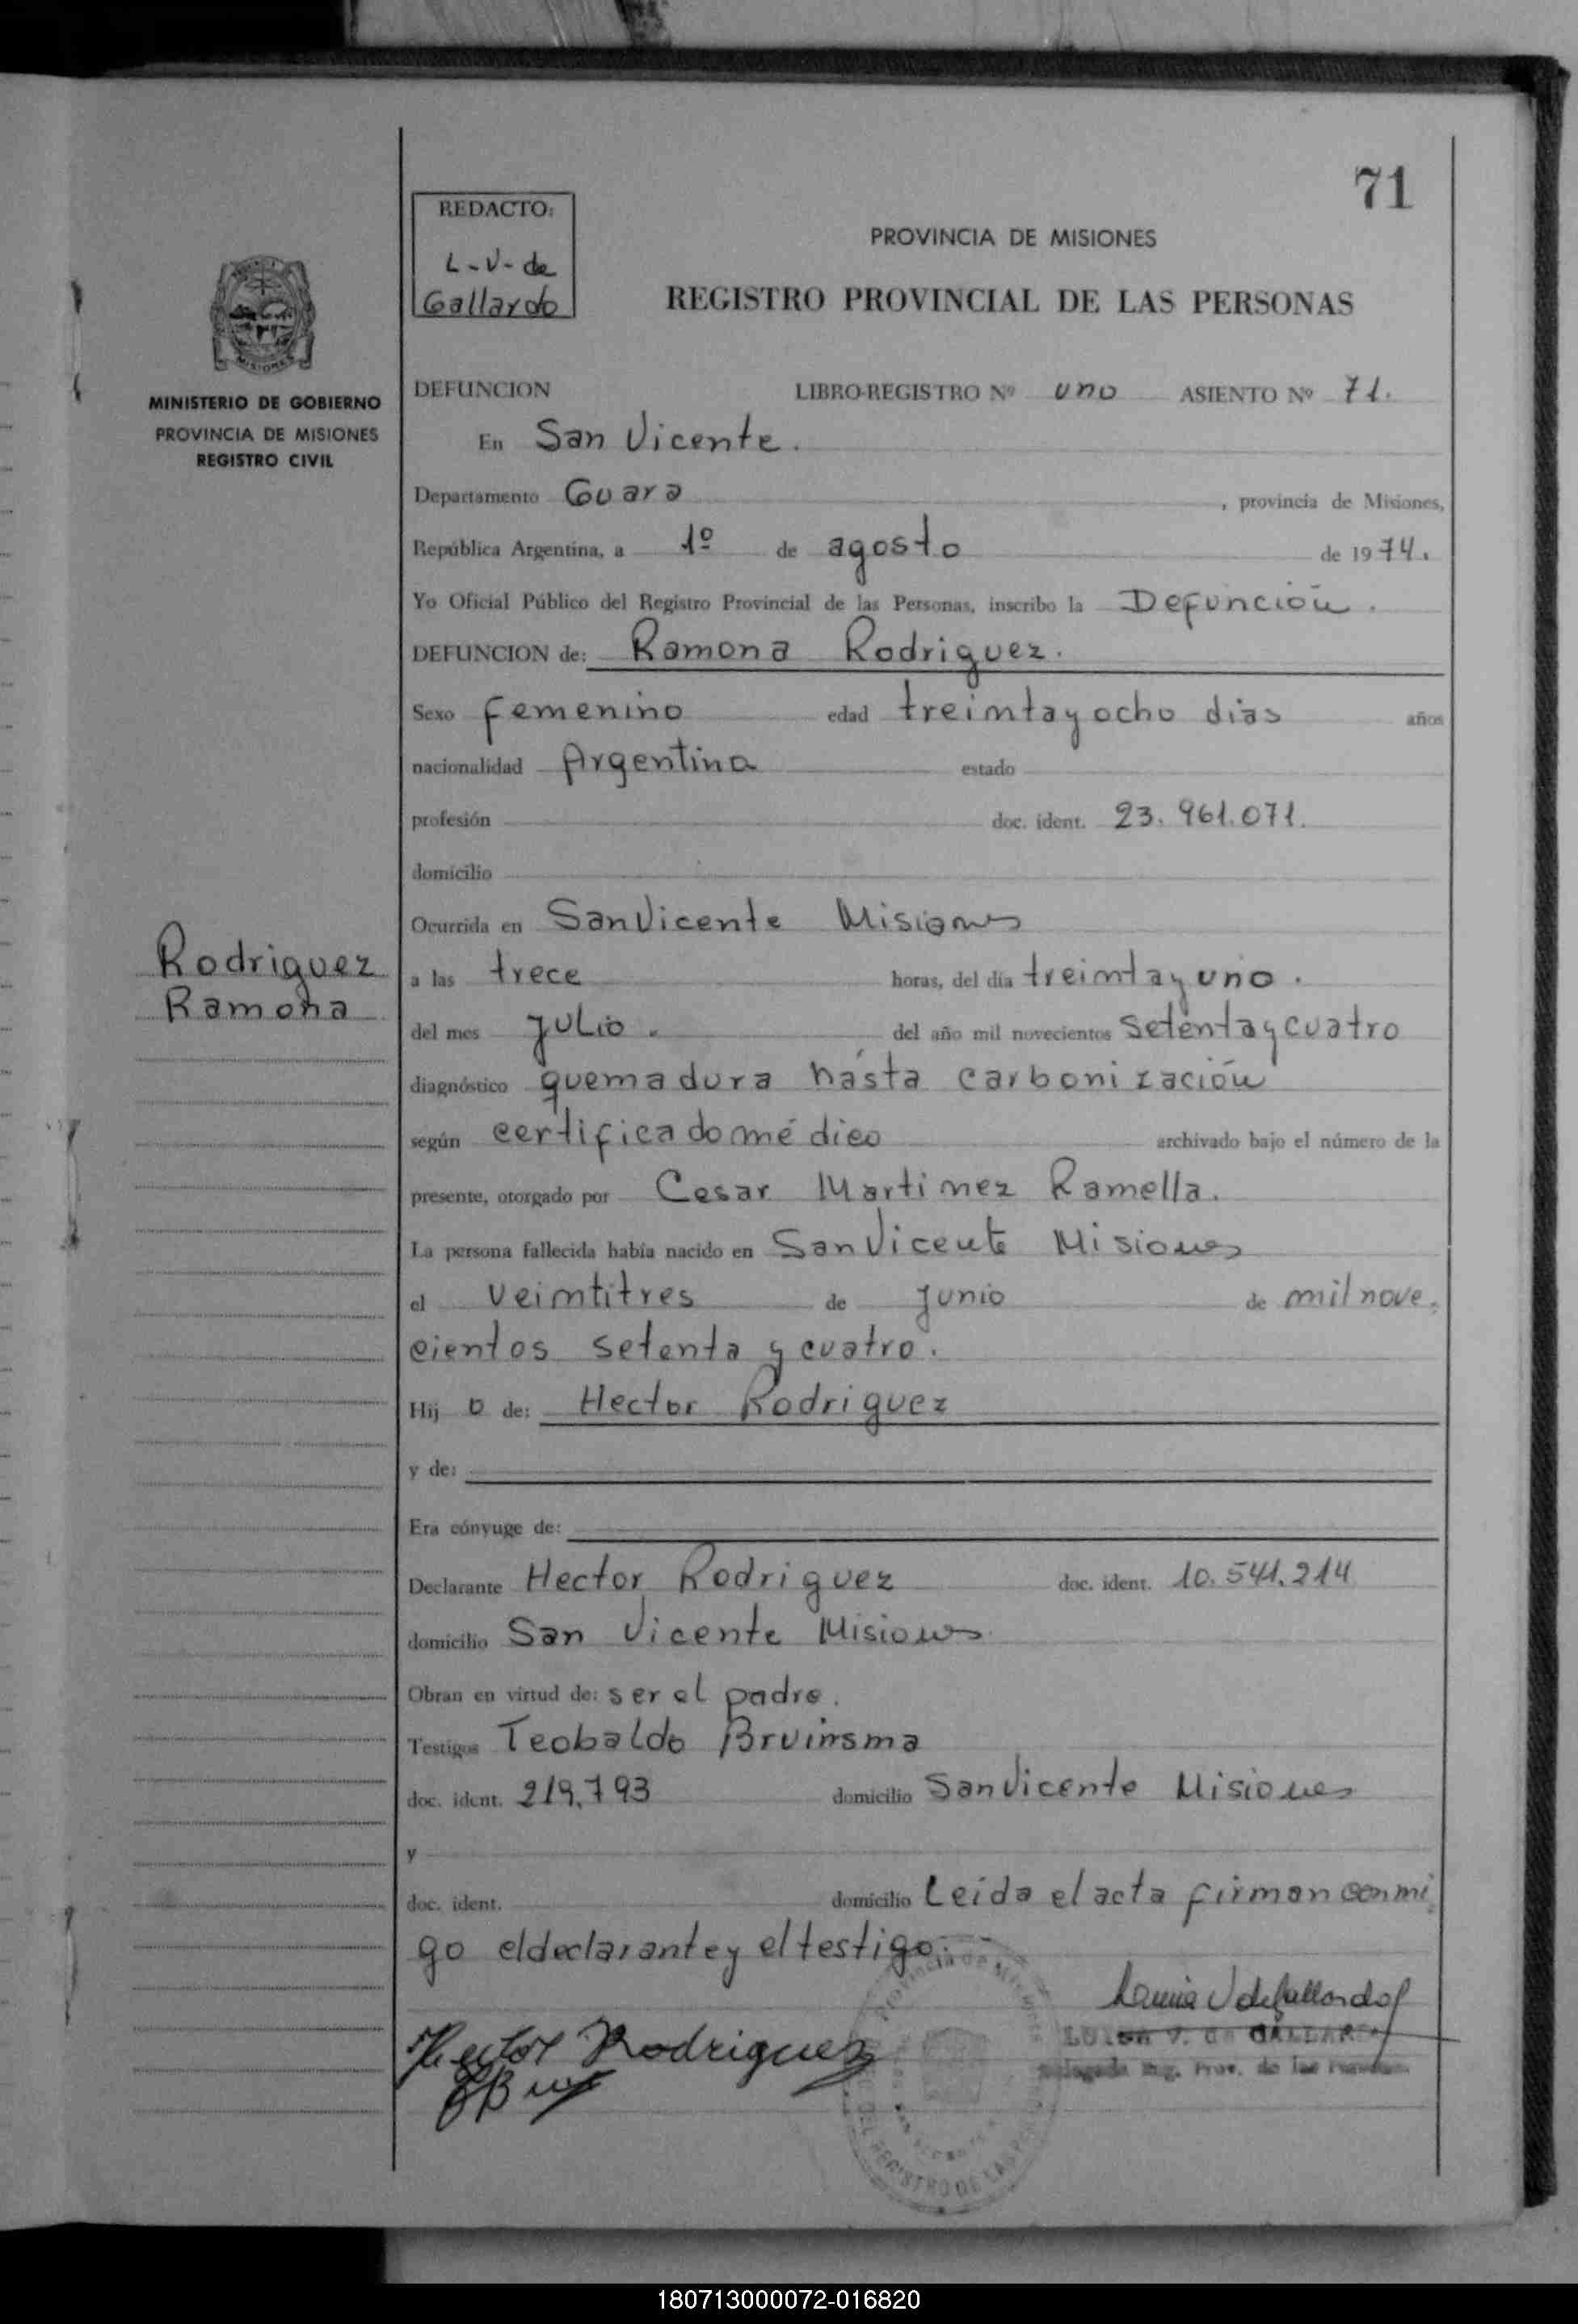 71
REDACTO:
L-V- de
Gallardo
PROVINCIA DE MISIONES
REGISTRO PROVINCIAL DE LAS PERSONAS
MINISTERIO DE GOBIERNO
PROVINCIA DE MISIONES
REGISTRO CIVIL
DEFUNCION LIBRO-REGISTRO Nº uno ASIENTO Nº 71.
En San Vicente.
Departamento Guara , provincia de Misiones,
República Argentina, a 1º de agosto de 1974.
Yo Oficial Público del Registro Provincial de las Personas, inscribo la Defunción.
DEFUNCION de: Ramona Rodriguez.
Sexo femenino edad treimtayocho dias años
nacionalidad Argentina estado
profesión doc. ident. 23.961.071.
domicilio
Ocurrida en San Vicente Misiones
Rodriguez
Ramona
a las trece horas, del día treimtay uno.
del mes julio. del año mil novecientos setenta y cuatro
diagnóstico quemadura hásta carbonización
según certificado médico archivado bajo el número de la
presente, otorgado por Cesar Martimez Ramella.
La persona fallecida había nacido en San Vicente Misiones
el veimtitres de junio de mil nove-
cientos setenta y cuatro.
Hij o de: Hector Rodriguez
y de:
Era cónyuge de:
Declarante Hector Rodriguez doc. ident. 10.541.214
domicilio San Vicente Misiones
Obran en virtud de: ser el padre.
Testigos Teobaldo Bruinsma
doc. ident. 219.793 domicilio San Vicente Misiones
y
doc. ident. domicilio Leída el acta firman conmi-
go el declarante y el testigo.-
Hector Rodriguez
LUISA V. de GALLARDO
Delegada Reg. Prov. de las Personas
Provincia de Misiones
REGISTRO DE LAS
180713000072-016820